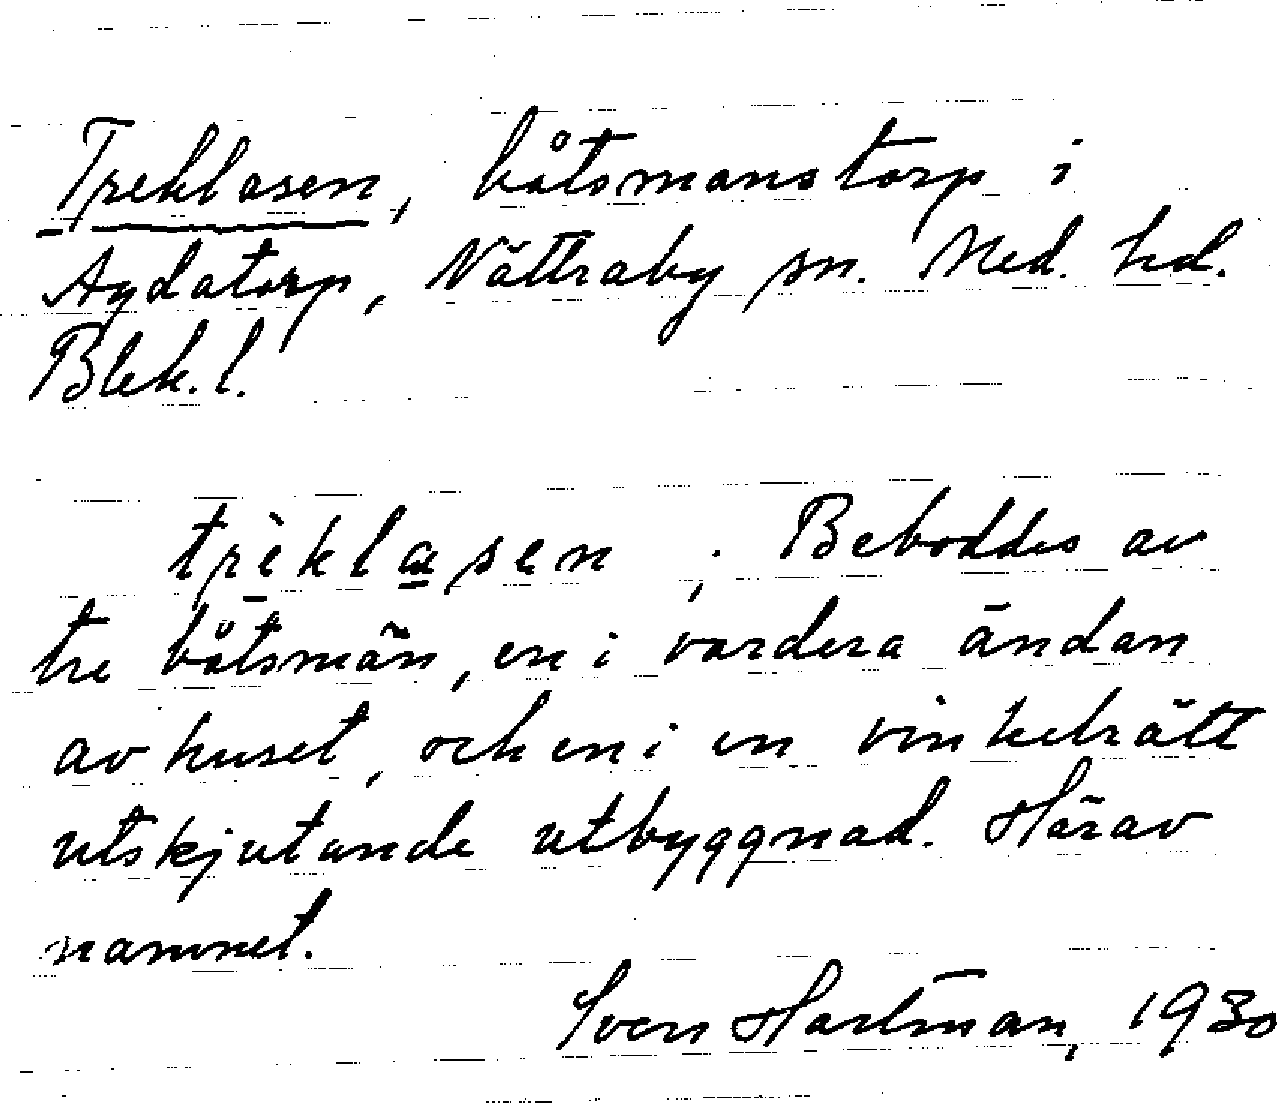 Treklasen, båtsmanstorp i
Agdatorp, Nättraby sn. Med. hd.
Blek. l.
trèklasen ; . Beboddes av
tre båtsmän, en i vardera ändan
av huset, och en i en vinkelrätt
utskjutande utbyggnad. Härav
namnet.
Sven Hartman, 1930